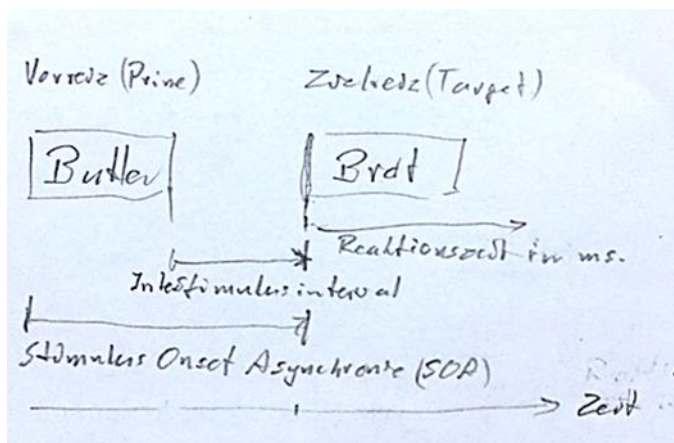 Vorreiz (Prime) Zielreiz (Target)
Butter Brot
Reaktionszeit in ms.
Interstimulusinterval
Stimulus Onset Asynchronie (SOA)
Zeit